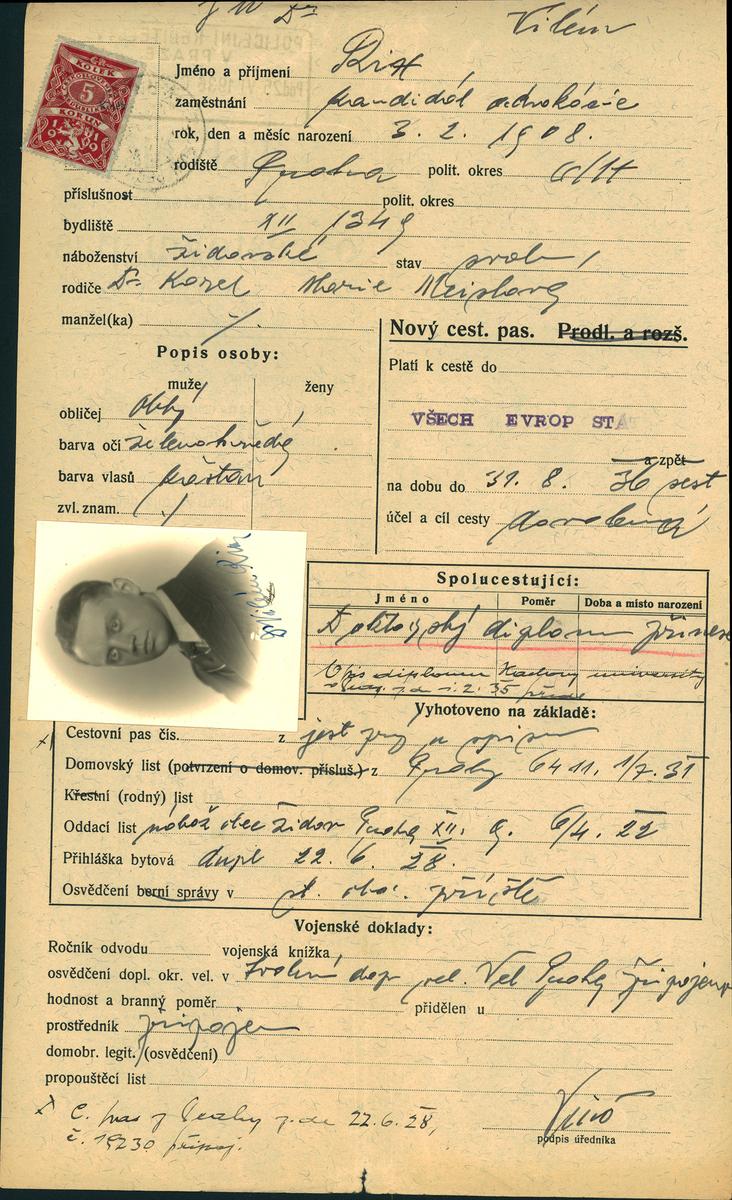 JUDr Vilém
KOLEK
5
KORUN
1919
Jméno a příjmení
zaměstnání kandidát advokacie
rok, den a měsíc narození 3. 2. 1908.
rodiště Praha polit. okres
příslušnost polit. okres
bydliště XII 1349
náboženství židovské stav svob.
rodiče Dr Karel Marie
manžel(ka) ⁒
Nový cest. pas. Prodl. a rozš.
Platí k cestě do
VŠECH EVROP STÁ
a zpět
na dobu do 31. 8. 36 šest
účel a cíl cesty dovolená
Popis osoby:
muže ženy
obličej
barva očí zelenohnědý
barva vlasů kaštan
zvl. znam. ⁒
Spolucestující:
Jméno Poměr Doba a místo narození
Doktorský diplom přinese
Opis diplomu Karlovy university
Vyhotoveno na základě:
Cestovní pas čís. z
Domovský list (potvrzení o domov. přísluš.) z Prahy 6411. 1/7. 31
Křestní (rodný) list
Oddací list nábož obec židov Praha XII. 6/4. 22
Přihláška bytová dupl 22. 6. 28.
Osvědčení berní správy v příště
Vojenské doklady:
Ročník odvodu vojenská knížka
osvědčení dopl. okr. vel. v dop vel. Vel Prahy připojeno
hodnost a branný poměr přidělen u
prostředník připojen
domobr. legit. (osvědčení)
propouštěcí list
x C. pas z Prahy z. de 22.6.28,
č. 19230 připoj.
podpis úředníka